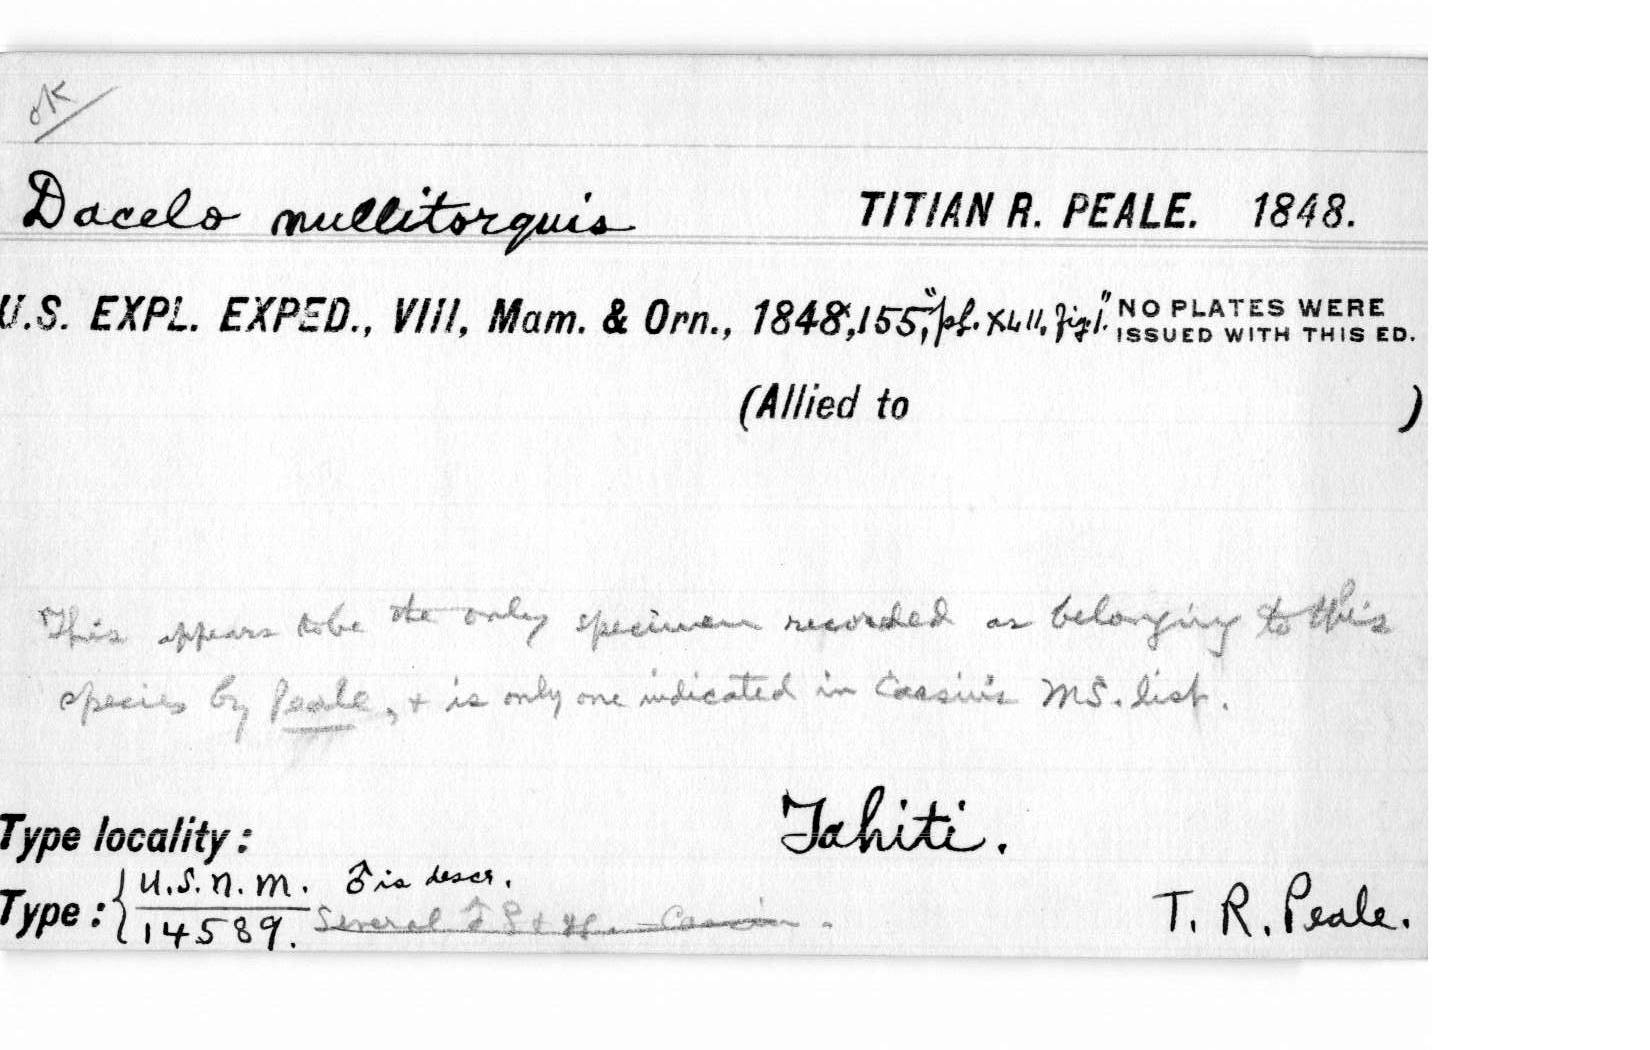 OK
Dacelo nullitorquis TITIAN R. PEALE. 1848.
U.S. EXPL. EXPED., VIII, Mam. & Orn., 1848, 155, "pl. XLII, fig 1." NO PLATES WERE ISSUED WITH THIS ED.
(Allied to )
This appears to be the only specimen recorded as belonging to this
species by Peale, + is only one indicated in Cassin's MS. list.
Type locality: Tahiti.
Type: { U.S.N.M. ♂ is descr.
14589. Several ♂ ♀ + Cassin. T. R. Peale.